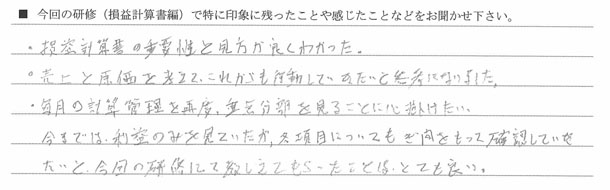 ■ 今回の研修（損益計算書編）で特に印象に残ったことや感じたことなどをお聞かせ下さい。
・損益計算書の重要性と見方が良くわかった。
・売上と原価を考えて、これからも行動していきたいと思いました。
・毎月の計算管理を再度、全部見ることに心掛けたい。
今までは、利益のみを見ていたが、各項目についても ぎ問をもって確認していき
たいと、今回の研修にて教えてもらったことは、とても良い。